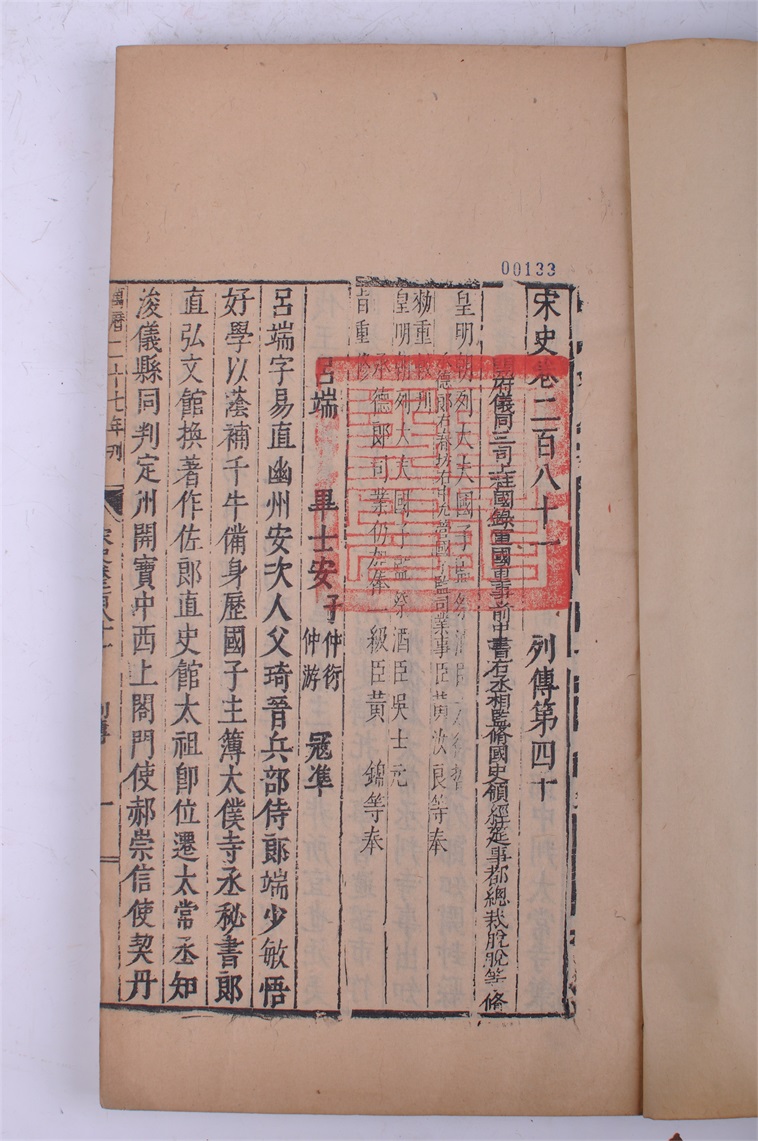 00133
宋史卷二百八十一 列傳第四十
開府儀同三司上柱國錄軍國重事前中書右丞相監修國史領經筵事都總裁脫脫等修
皇明朝列大夫國子監祭酒臣方從哲
承德郎右春坊右中允管國子監司業事臣黃汝良等奉
勑重較刊
皇明朝列大夫國子監祭酒臣吳士元
承德郎司業仍加俸一級臣黃 錦等奉
旨重修
呂端 畢士安 子仲衍 仲游 冦準
呂端字易直幽州安次人父琦晉兵部侍郎端少敏悟
好學以蔭補千牛備身歷國子主簿太僕寺丞秘書郎
直弘文館換著作佐郎直史館太祖卽位遷太常丞知
浚儀縣同判定州開寶中西上閣門使郝崇信使契丹
萬曆二十七年刊 宋史卷二百八十一 列傳 一